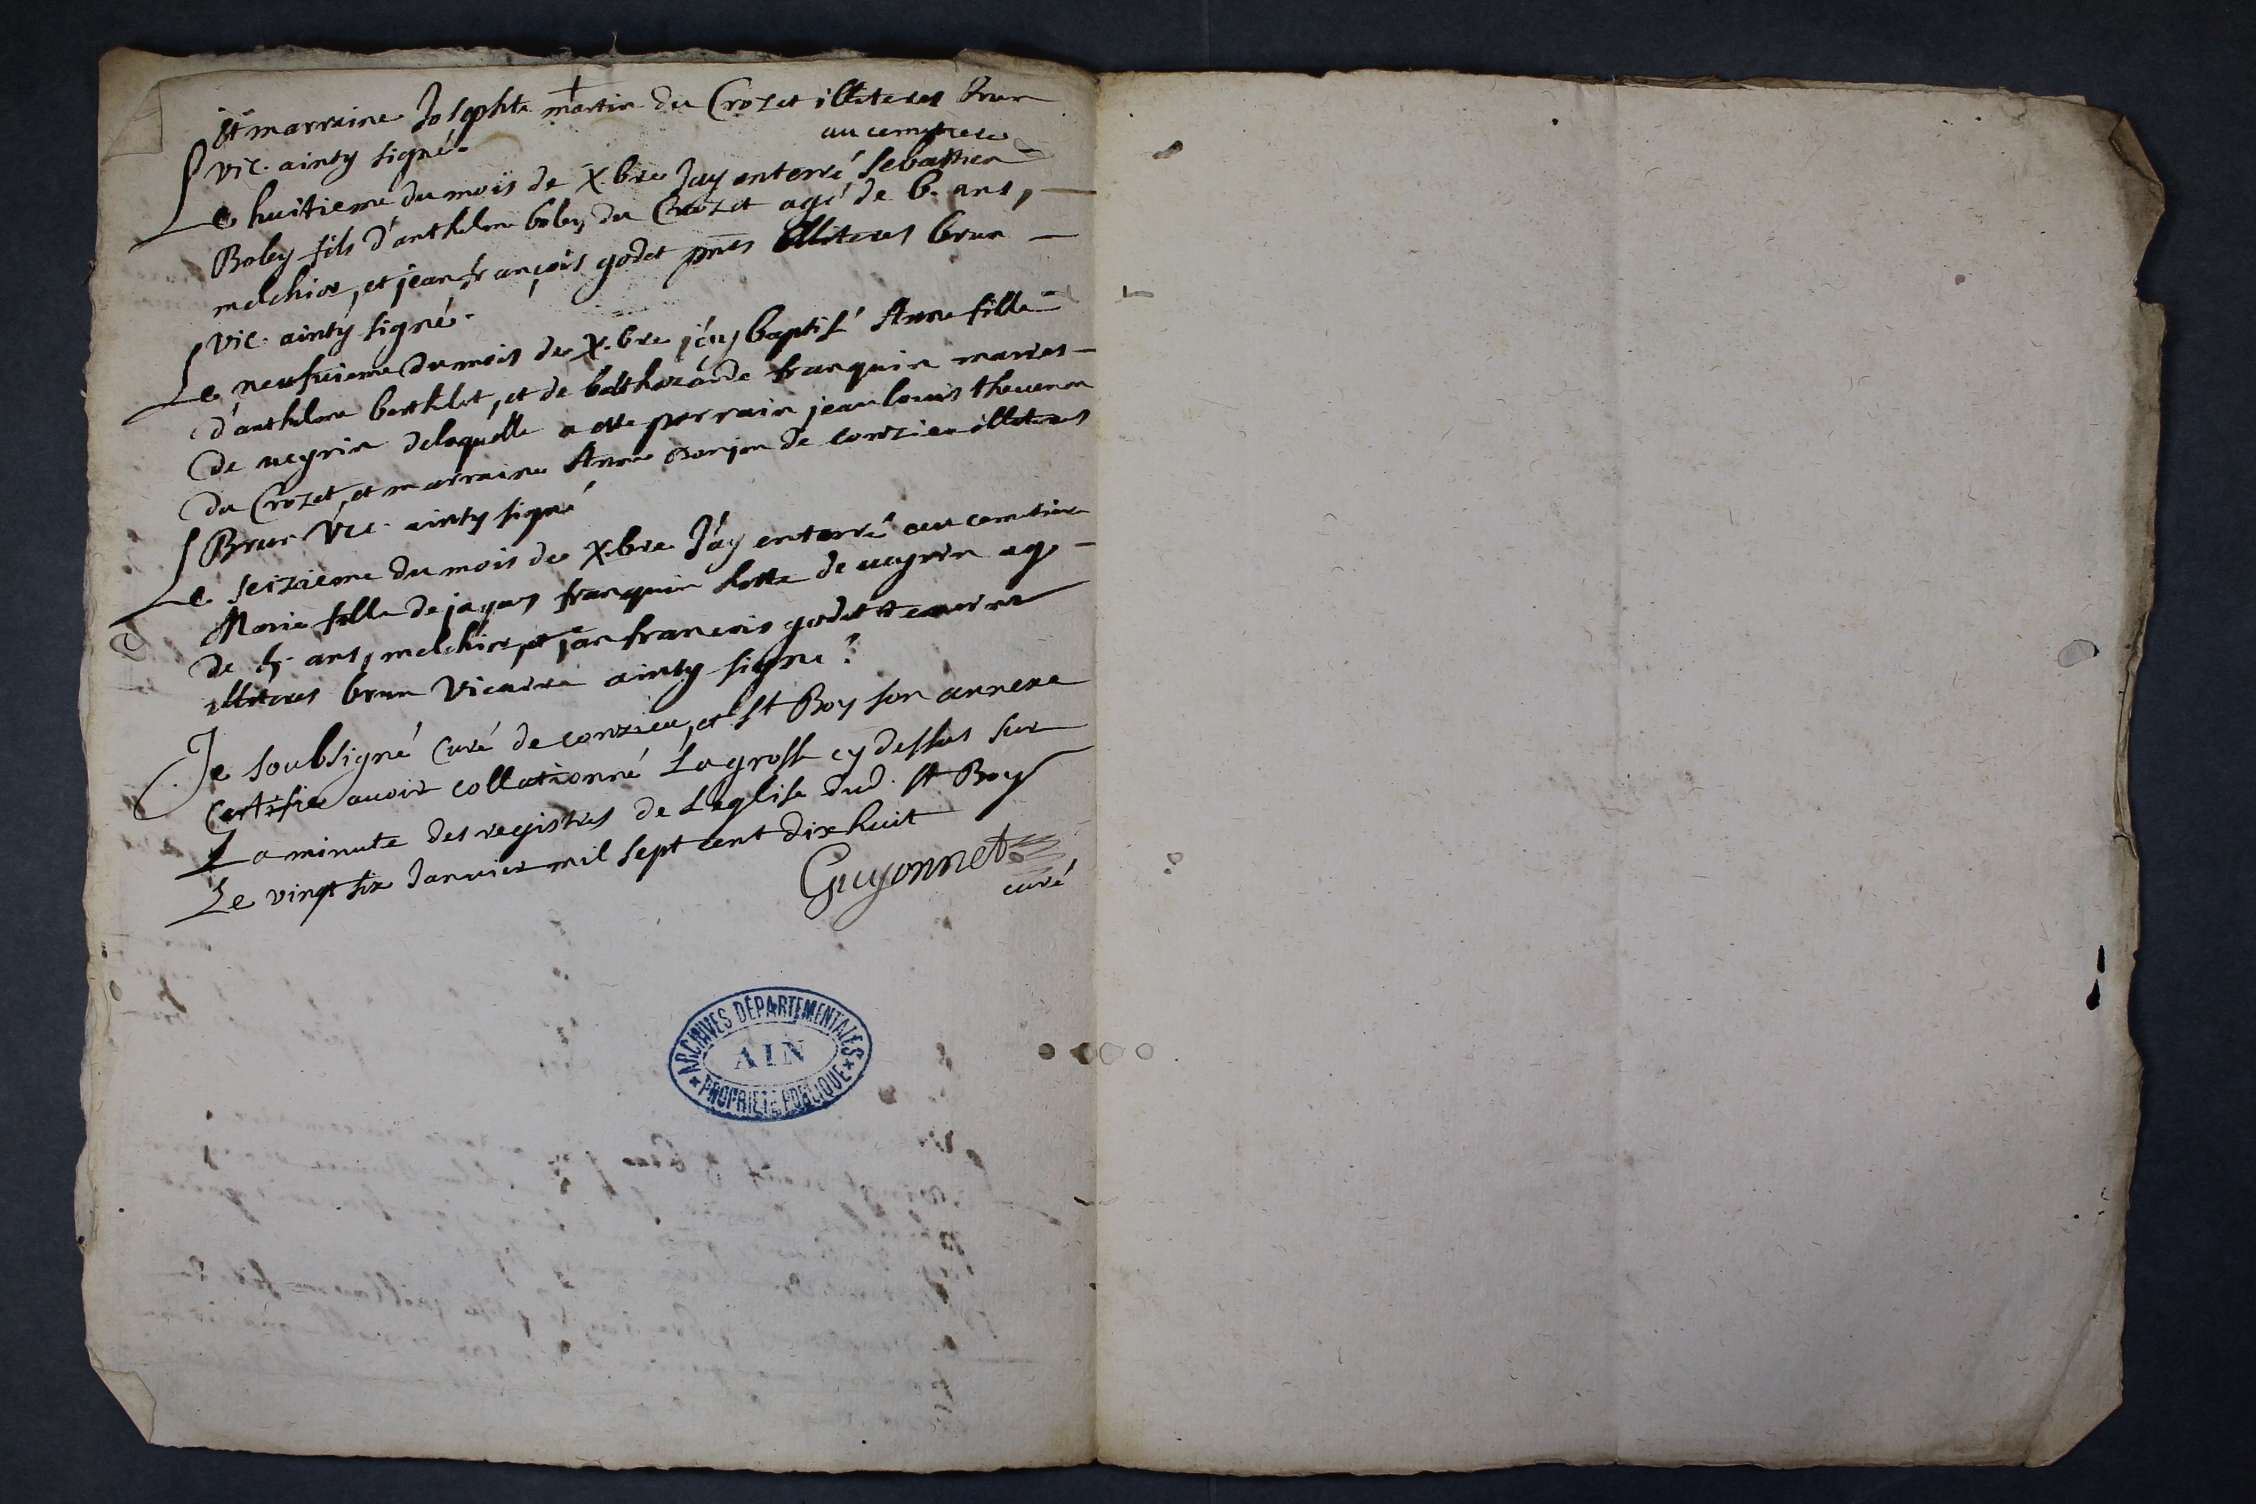 Et marraine Josephte martin du Crozet illiteres Brun
vic. ainsy signé.
au cemetiere
Le huitieme du mois de X.bre Jay enterré Sebastien
Bobey fils d'anthelme bobey du Crozet agé de 6. ans,
melchior, et jean françois godet pnts illiteres brun
vic. ainsy signé.
Le neufvieme du mois de X.bre j'ay baptisé Anne fille
d'anthelme berthlet, et de balthazarde franquin maries
de veyrin delaquelle a esté parrain jean louis thevenon
du Crozet, et marraine Anne de conzieu illiteres
Brun vic. ainsy signé
Le seizieme du mois de X.bre J'ay enterré au cemetiere
Marie fille de jaques franquin de veyrin ag
de ans, melchior, et jan francois godet temoins
illiteres brun vicaire ainsy signé.
Je soubsigné curé de conzieu, et St Boy son annexe
certifie avoir collationné La grosse cy dessus sur
La minute des registres de Leglise dud. St Boy
Le vingt six Janvier mil sept cent dix huit
Guyonnet
curé
ARCHIVES DÉPARTEMENTALES
AIN
PROPRIÉTÉ PUBLIQUE